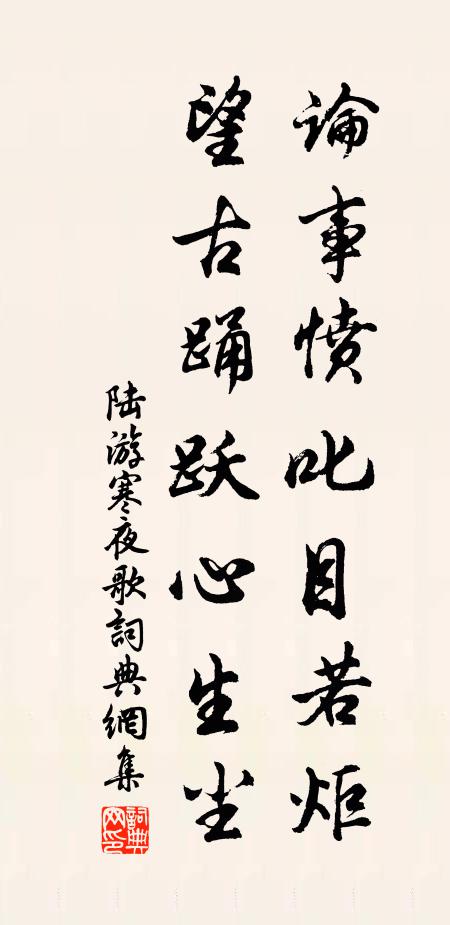 論事憤叱目若炬
望古踊跃心生尘
陆游寒夜歌詞典網集
詞典网印